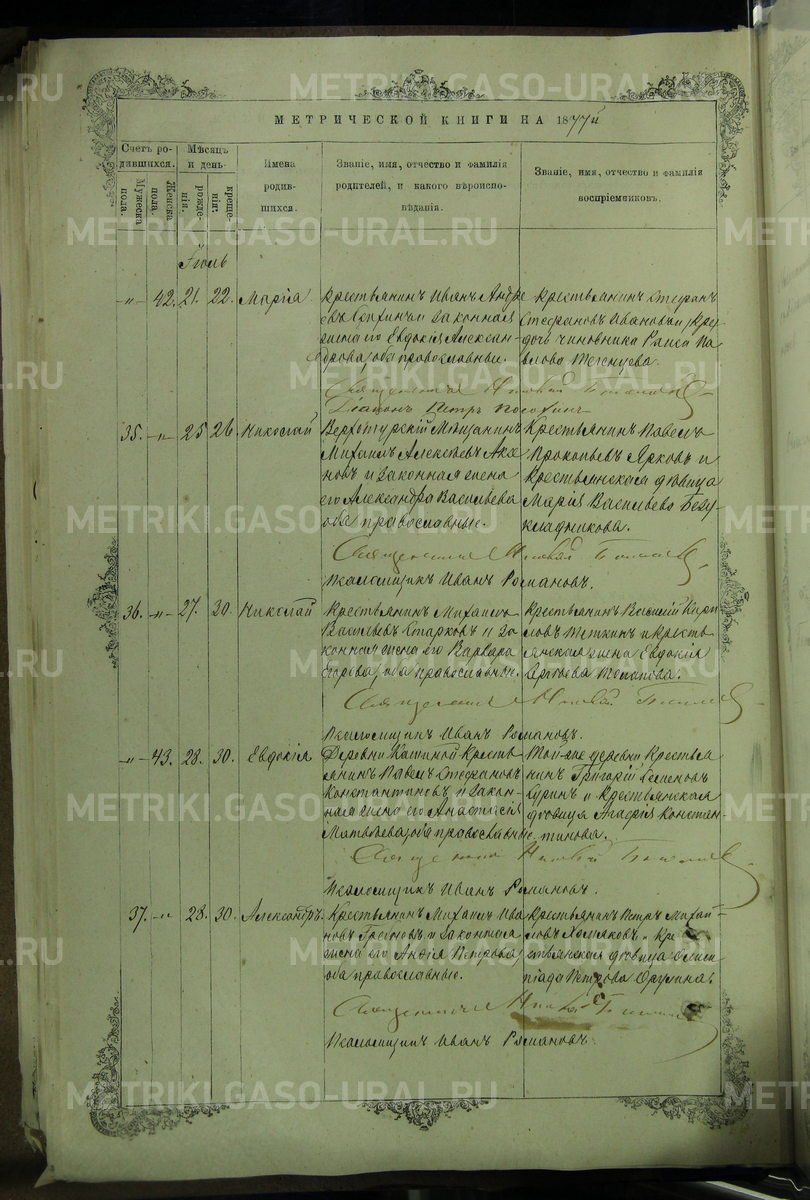 МЕТРИЧЕСКОЙ КНИГИ НА 1877й
Счетъ родившихся.
Мужеска пола.
Женска пола.
Мѣсяцъ и день
рожденія.
крещенія.
Имена родившихся.
Званіе, имя, отчество и фамилія родителей, и какого вѣроисповѣданія.
Званіе, имя, отчество и фамилія воспріемниковъ.
Іюль
-„- 42. 21. 22. Марія
Крестьянинъ Иванъ Андре
евъ и законная
жена его Евдокія Алексан-
дрова, оба православные.
Крестьянинъ Стефанъ
Стефановъ Ивановъ и
дочь чиновника Раиса Па
влова
Священникъ
Діаконъ Петръ
35. -„- 25 26. Николай
Верхотурскій Мѣщанинъ
Михаилъ Алексѣевъ Акса
новъ и законная жена
его Александра Васильева
оба православные.
Крестьянинъ Павелъ
Прокопьевъ Ярковъ и
Крестьянская дѣвица
Марія Васильева Безу-
кладникова.
Священникъ
Псаломщикъ Иванъ Романовъ.
36. -„- 27. 30. Николай
Крестьянинъ Михаилъ
Васильевъ Старковъ и за
конная жена его Варвара
Егорова, оба православные.
Крестьянинъ Василій Кири
ловъ Теткинъ и Кресть
янская жена Евдокія
Потапова.
Священникъ
Псаломщикъ Иванъ Романовъ.
-„- 43. 28. 30. Евдокія
Деревни Кресть
янинъ Павелъ Стефановъ
Константиновъ и закон-
ная жена его Анастасія
Матвѣева, оба православные
Той-же деревни Крестья
нинъ Григорій Семеновъ
и Крестьянская
дѣвица Агафія Констан
тинова.
Священникъ
Псаломщикъ Иванъ Романовъ.
37. -„- 28. 30. Александръ.
Крестьянинъ Михаилъ Ива
новъ и законная
жена его Петрова,
оба православные.
Крестьянинъ Петръ Михай-
ловъ Хомяковъ и Кре
стьянская дѣвица Олим
піада Петрова
Священникъ
Псаломщикъ Иванъ Романовъ.
METRIKI.GASO-URAL.RU